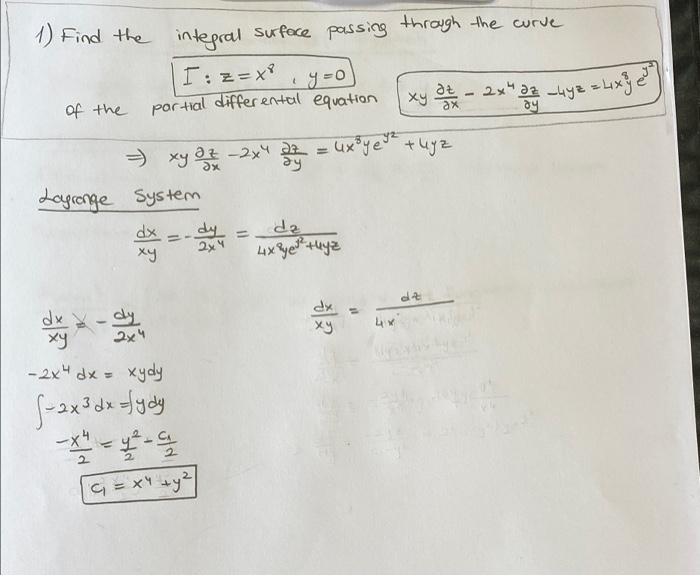 1) Find the integral surface passing through the curve
I : z = x⁸ , y = 0
of the partial differental equation
xy ∂z/∂x - 2x⁴ ∂z/∂y - 4yz = 4x⁸ye^y²
⇒ xy ∂z/∂x - 2x⁴ ∂z/∂y = 4x⁸ye^y² + 4yz
Lagrange System
dx/xy = - dy/2x⁴ = dz/4x⁸ye^y² + 4yz
dx/xy = - dy/2x⁴
dx/xy = dz/4x
-2x⁴ dx = xydy
∫-2x³ dx = ∫ydy
-x⁴/2 = y²/2 - C₁/2
C₁ = x⁴ + y²